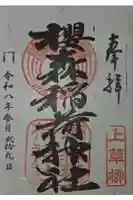 奉拝
櫻森稲荷神社
令和八年参月弐拾九日
上草柳